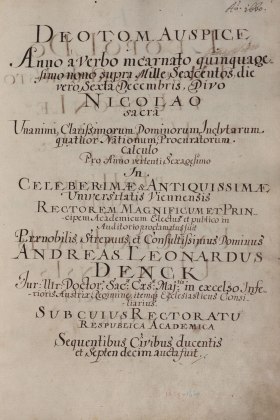 Aõ. 1660.
DEO TOM. AUSPICE
Anno a Verbo incarnato quinquage-
simo nono supra Mille Sexcentos, die
vero Sexta Decembris, Divo
NICOLAO
sacra
Unanimi, Clarissimorum Dominorum, Inclytarum
quatuor Nationum, Procuratorum
Calculo
Pro Anno vertenti Sexagesimo
In
CELEBERIMÆ ANTIQUISSIMÆ
Universitatis Viennensis
RECTOREM MAGNIFICUM ET PRIN-
cipem Academicum Electus et publico in
Auditorio proclamatus fuit
Prænobilis Strenuus et Consultissimus Dominus
ANDREAS LEONARDUS
DENCK
Jur: Utr: Doctor, Sac: Cæs: Maj: in excelso Infe-
rioris Austriæ Regimine, item et Ecclesiasticus Consi-
liarius.
SUB CUIUS RECTORATU
RESPUBLICA ACADEMICA
Sequentibus Civibus ducentis
et Septendecim aucta fuit.